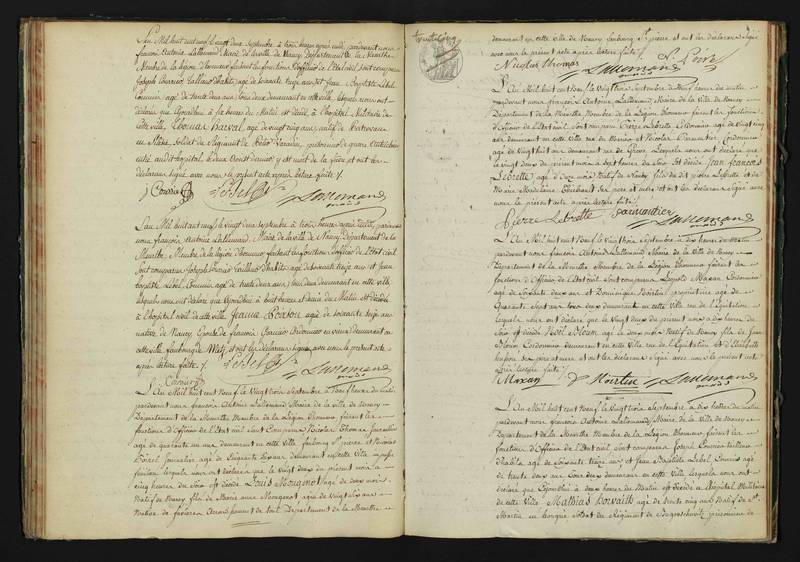 L'an Mil huit cent neuf le vingt deux Septembre à trois heures après midi, pardevant nous
françois Antoine Lallemand Maire de la ville de Nancy Département de la Meurthe
Membre de la légion d'honneur faisant les fonctions d'officier de l'Etat civil sont comparus
Joseph Courrier tailleur d'habits, agé de soixante treize ans et Jean Baptiste Lebel
Commis agé de trente deux ans, tous deux demeurant en cette ville, lesquels nous ont
déclaré que à heures du Matin est décédé à l'hôpital Militaire de
cette ville, Thomas agé de vingt cinq ans, natif de
en Soldat du Régiment de prisonnier de guerre Autrichien
audit hôpital, y est mort de la fièvre et ont les
déclarans signé avec nous le présent acte après lecture faite ./.
Courrier Lebel Lallemand
maire
L'an Mil huit cent neuf le vingt deux Septembre à trois heures après midi, pardevant
nous françois Antoine Lallemand, Maire de la ville de Nancy, département de la
Meurthe, Membre de la légion d'honneur, faisant les fonctions d'officier de l'Etat civil
sont comparus Joseph Courrier tailleur d'habits, agé de soixante treize ans et Jean
baptiste Lebel, Commis, agé de trente deux ans, tous deux demeurant en cette ville
lesquels nous ont déclaré que à huit heures et demi du Matin est décédée
à l'hôpital civil de cette ville, Jeanne Poirson agée de soixante treize ans
native de Nancy, Epouse de françois Cordonnier en vieux demeurant en
cette ville faubourg Metz, et ont les déclarans signé avec nous le présent acte
après lecture faite ./. Lebel Lallemand
Courrier maire
L'An Mil huit cent Neuf, le Vingt trois Septembre à Neuf heures du matin
pardevant nous françois Antoine Lallemand Maire de la ville de Nancy
Département de la Meurthe Membre de la Légion d'honneur faisant les
fonctions d'Officier de l'Etat civil sont Comparus Nicolas Thomas Journalier
agé de quarante un ans, demeurant en cette Ville faubourg St pierre et Nicolas
Poirel journalier, agé de Cinquante Six ans demeurant en cette Ville
faubourg lesquels nous ont déclaré que le vingt deux du présent mois à
cinq heures du Soir est décédé Louis Mougenot agé de deux mois
Natif de Nancy fils de Marie anne Mougenot agée de vingt six ans
Native de Arrondissement de toul Département de la Meurthe
trente cinq
demeurant en cette ville de Nancy faubourg St pierre et ont les déclarans signé
avec nous le présent acte après lecture faite ./.
Nicolas Thomas N. Poirel
Lallemand
maire
L'An Mil huit cent Neuf, le Vingt trois Septembre à Neuf heures du matin
pardevant nous françois Antoine Lallemand, Maire de la Ville de Nancy
Département de la Meurthe Membre de la Légion d'honneur faisant les fonctions
d'Officier de l'Etat civil, sont comparus Pierre Lebrette Cordonnier agé de vingt cinq
ans demeurant en cette ville rue du et Nicolas Parmentier Cordonnier
agé de vingt huit ans demeurant rue de lesquels nous ont déclaré que
le vingt deux du présent mois à sept heures du soir est décédé Jean François
Lebrette, agé d'onze mois Natif de Nancy fils du dit pierre Lebrette et de
Marie Madeleine Ses père et mère et ont les déclarans signé avec
nous le présent acte après lecture faite ./.
Pierre Lebrette Parmentier Lallemand
maire
L'An Mil huit cent Neuf, le vingt trois Septembre à dix heures du matin
pardevant nous françois Antoine Lallemand Maire de la Ville de Nancy
Département de la Meurthe Membre de la Légion d'honneur faisant les
fonctions d'Officier de l'Etat civil, sont comparus Léopold Maxan Cordonnier
agé de Soixante deux ans et Dominique propriétaire agé de
Quarante Sept ans tous deux demeurant en cette ville rue de l'Equitation
lesquels nous ont déclaré que le Vingt deux du présent mois à dix heures du
Soir est décédé agé de deux mois Natif de Nancy fils de Jean
Cordonnier demeurant en cette Ville rue de l'Equitation et d'Elisabeth
Ses père et mère et ont les déclarans Signé avec nous le présent acte
après lecture faite ./.
Maxan Lallemand
maire
L'An Mil huit cent Neuf, le Vingt trois Septembre, à dix heures du matin
pardevant nous françois Antoine Lallemand, Maire de la Ville de Nancy
Département de la Meurthe Membre de la Légion d'honneur, faisant les
fonctions d'Officier de l'Etat civil, sont comparus Joseph Courrier tailleur
d'habits, agé de Soixante treize ans et Jean Baptiste Lebel, Commis agé
de trente deux ans tous deux demeurant en cette Ville lesquels nous ont
déclaré que à deux heures du Matin est décédé à l'hôpital Militaire
de cette Ville Mathias Horvaith agé de trente cinq ans Natif de St
Martin en hongrie Soldat du Régiment de prisonnier de